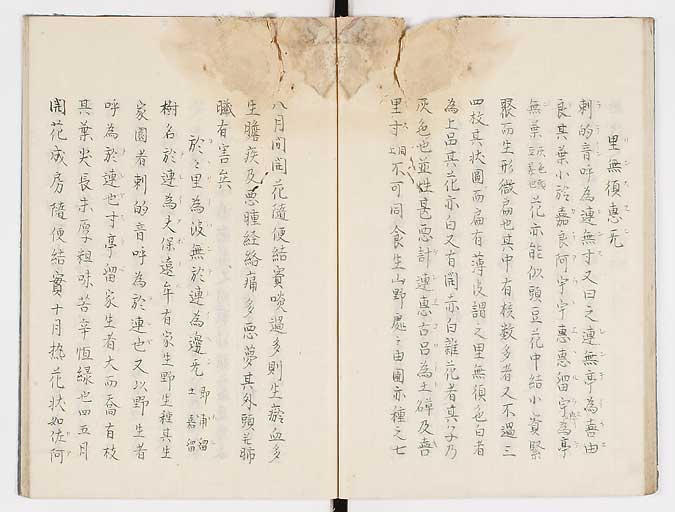 里無須惠旡
刺的音呼為連無才又曰之連無亭為喜由
良其葉小於嘉良阿宇宇惠惠留宇為亭
無葉花亦能似頭豆花中結小實緊
聚而生形微扁也其中有核數多者又不過三
四枚其状圓而扁有薄皮謂之里無須色白者
為上品其花亦白又有開赤白雜花者其子乃
灰色也並性甚惡計連惠古呂為土磾及喜
里才不可同食生山野處之由園亦種之七
八月间開花隨便結實啖過多則生瘀血多
生膽疾及惡瞳経絡痛多惡夢其外頭老肺
臓有害矣
於之里為波無於連為邊旡
即甫留
土嘉留
樹名於連為夫保遠牟有家生野生種其生
家園者刺的音呼為於連也又以野生者
呼為於連也寸亭留家生者大而喬有枝
其葉尖長末厚粗味苦辛恒緑也四五月
開花成房隨便結實十月熟花状如佐阿